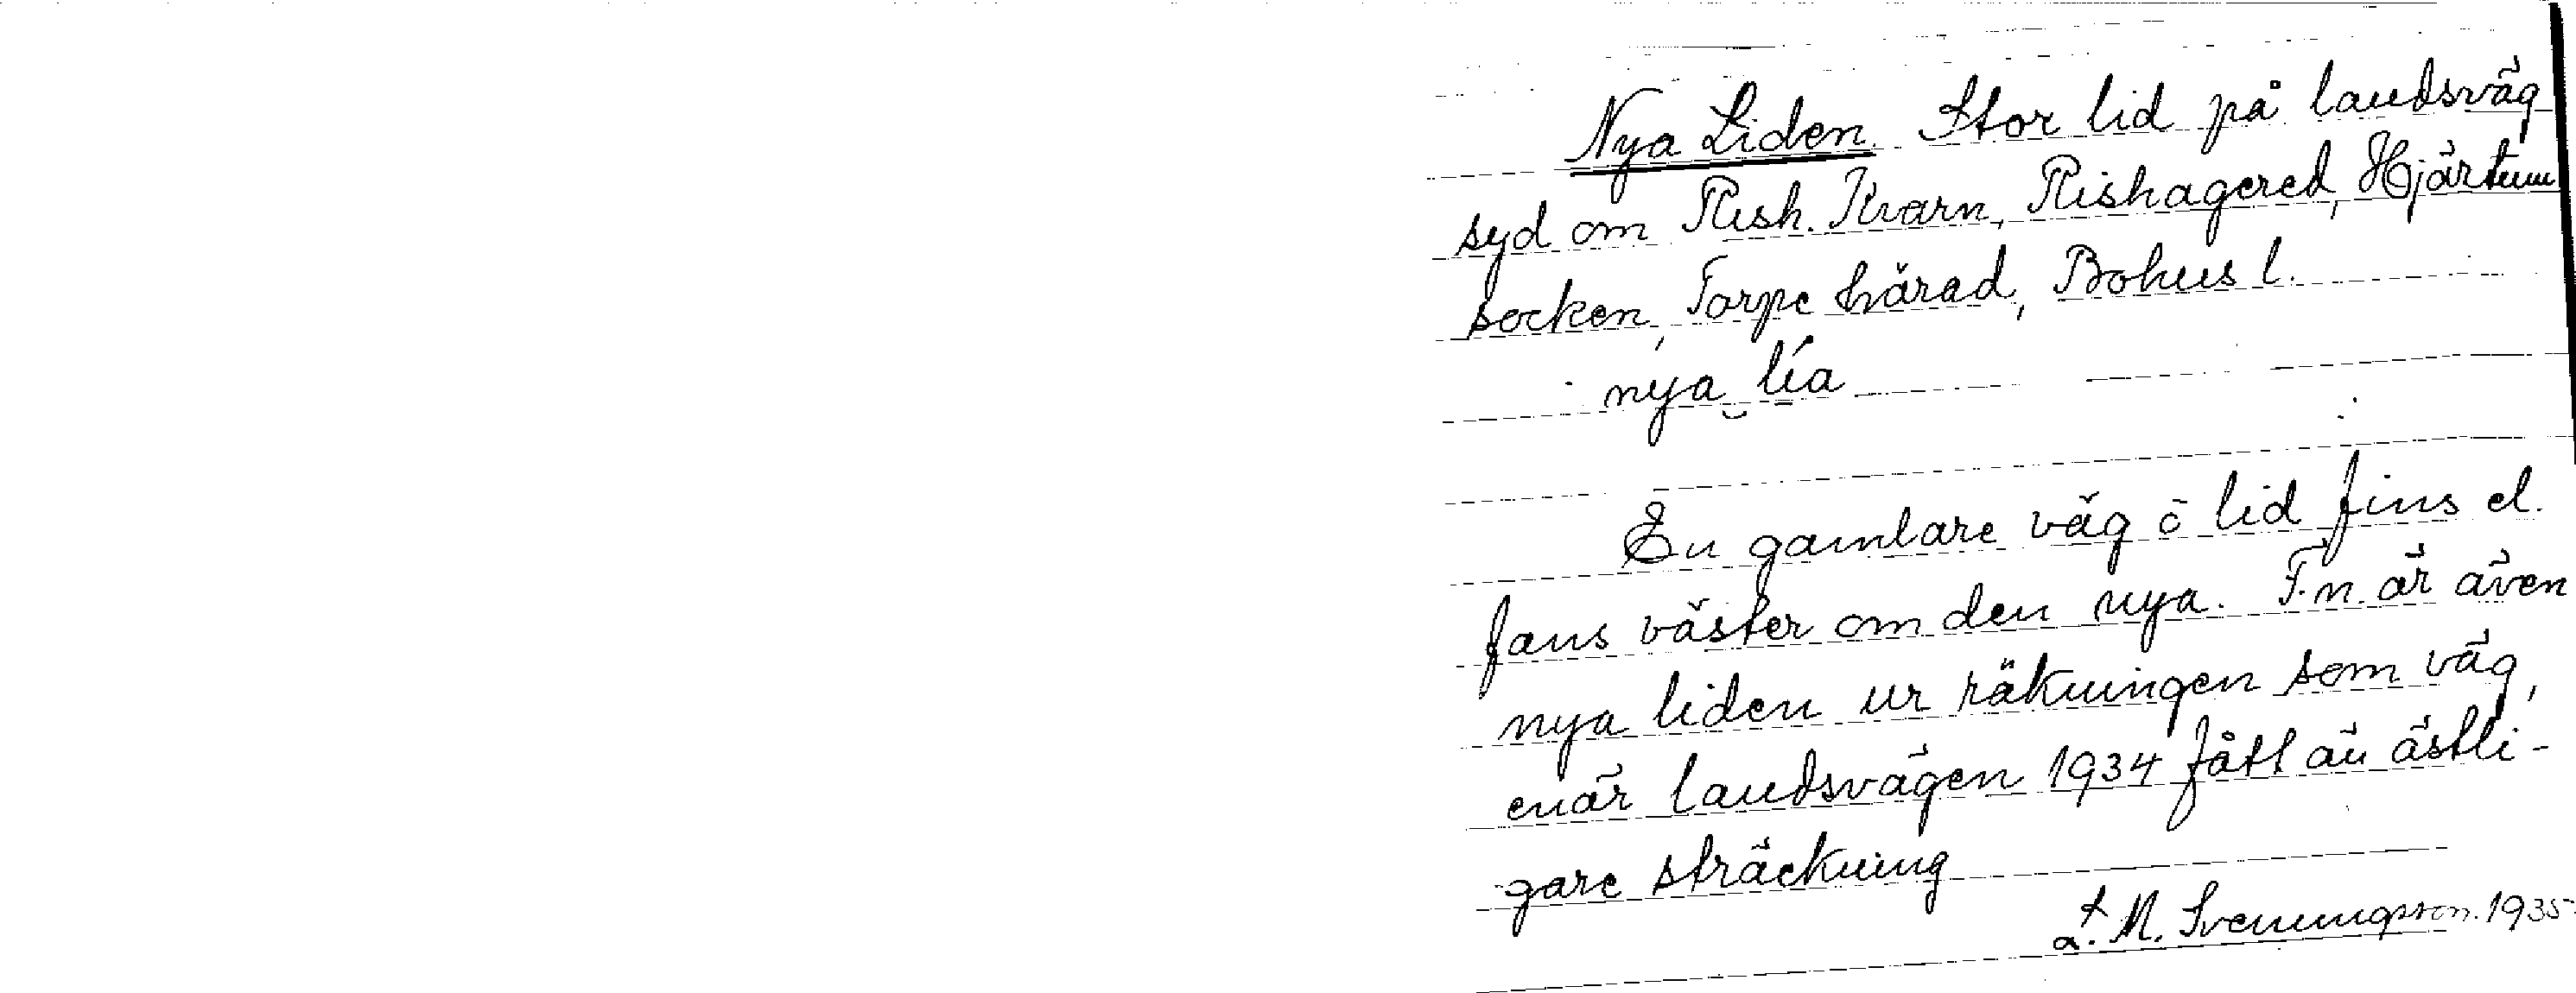 Nya Liden. Stor lid på landsväg
syd om Rish. Kvarn, Rishagered, Hjärtum
socken, Torpe härad, Bohus l.
nya lía
En gamlare väg o lid fins el.
fans väster om den nya. F.n. är även
nya liden ur räkningen som väg,
enär landsvägen 1934 fått en östli-
gare sträckning
M. Svenungsson. 1935